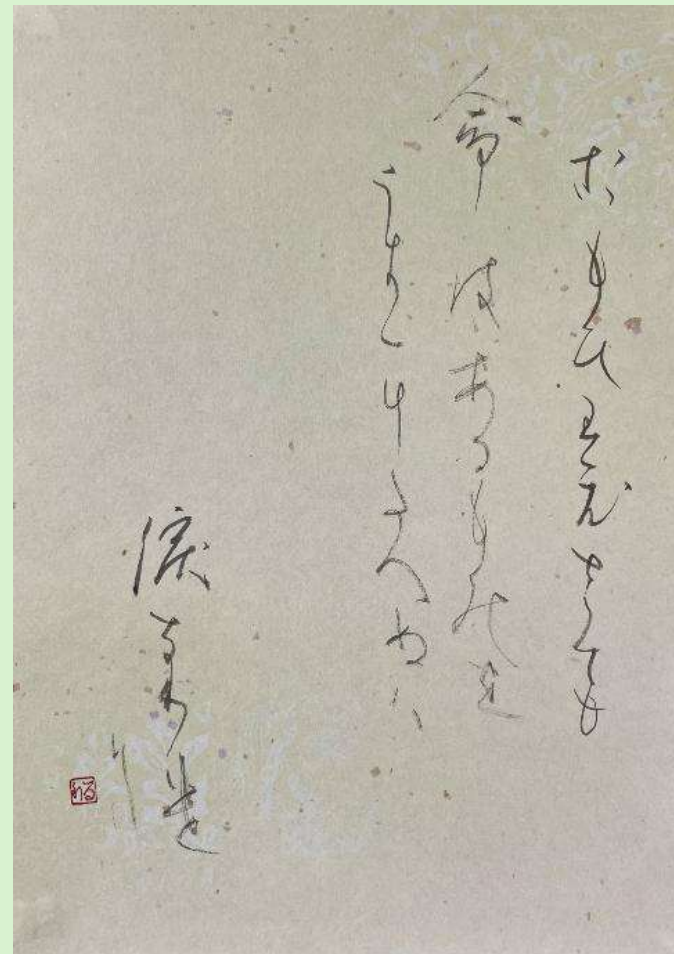 おもひわびさても
命はあるものを
うきにたへぬは
涙なりけり